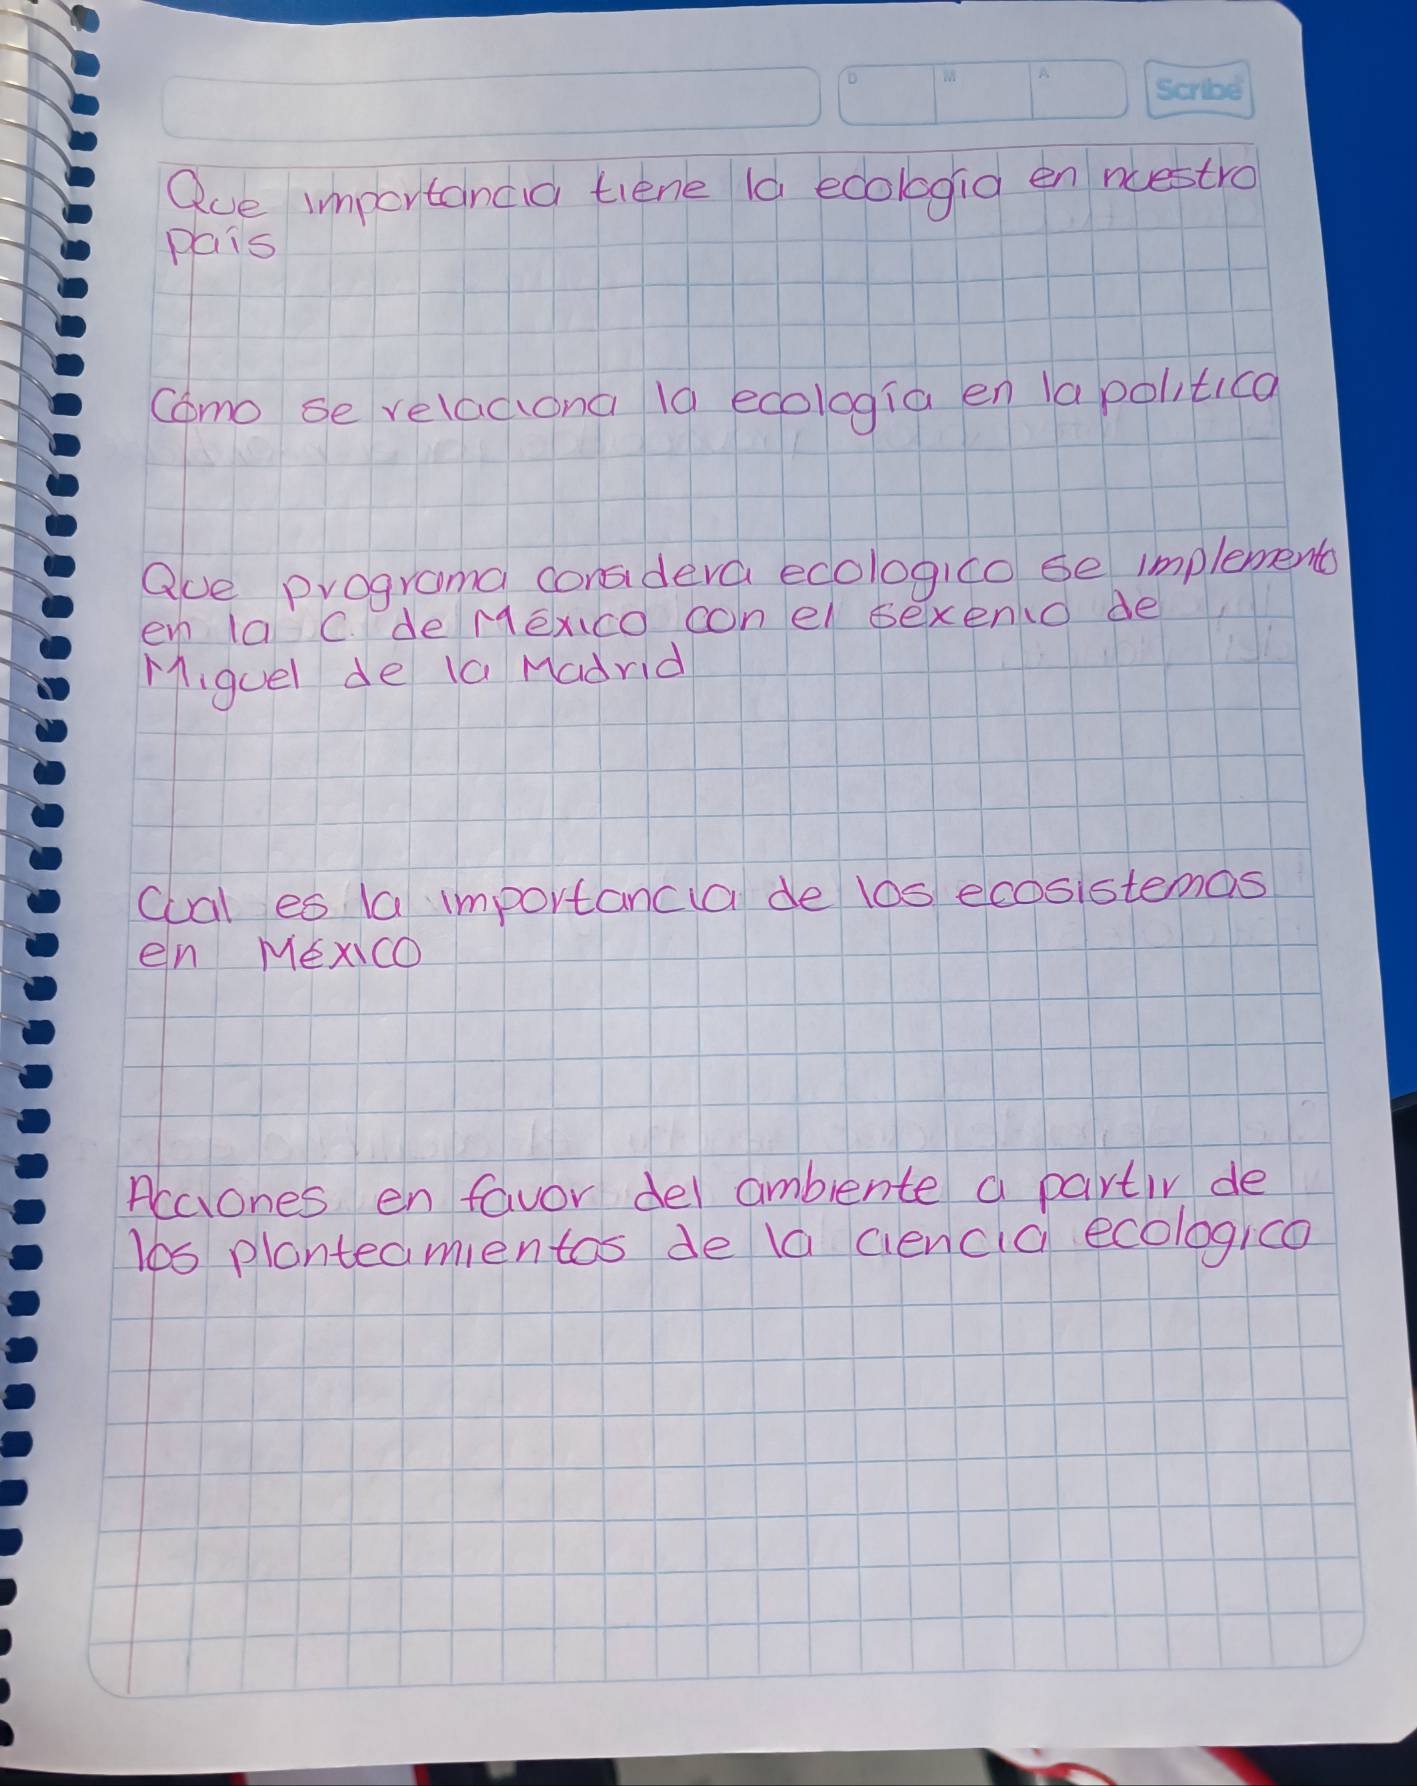 D M A Scribe
Que importancia tiene la ecología en nuestro
país
Cómo se relaciona la ecología en la politica
Que programa considera ecologico se implemento
en la C. de México con el sexenio de
Miguel de la Madrid
Cual es la importancia de los ecosistemas
en México
Acciones en favor del ambiente a partir de
los planteamientos de la ciencia ecologico